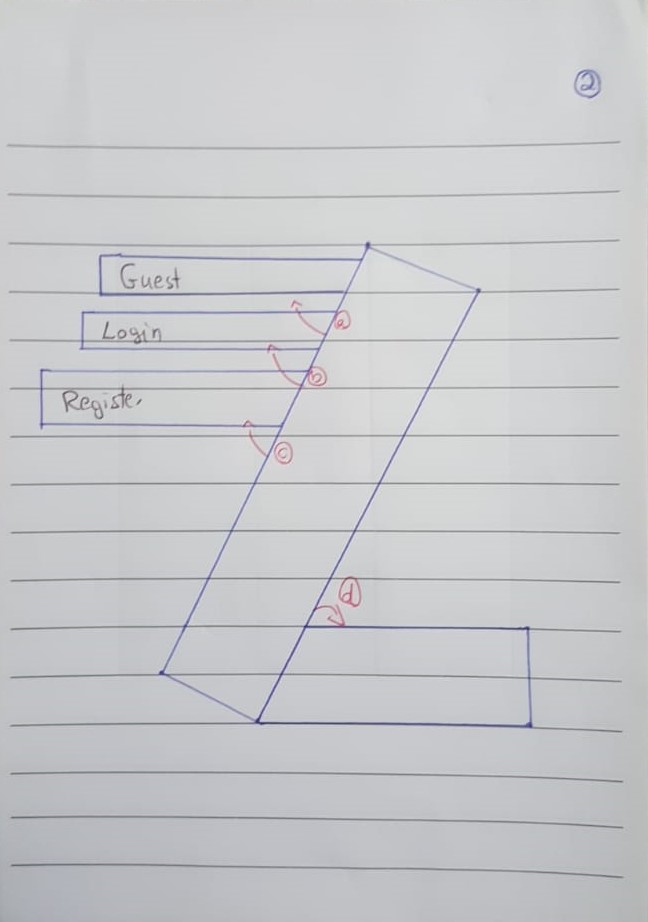 ②
Guest
ⓐ
Login
ⓑ
Registe.
ⓒ
ⓓ